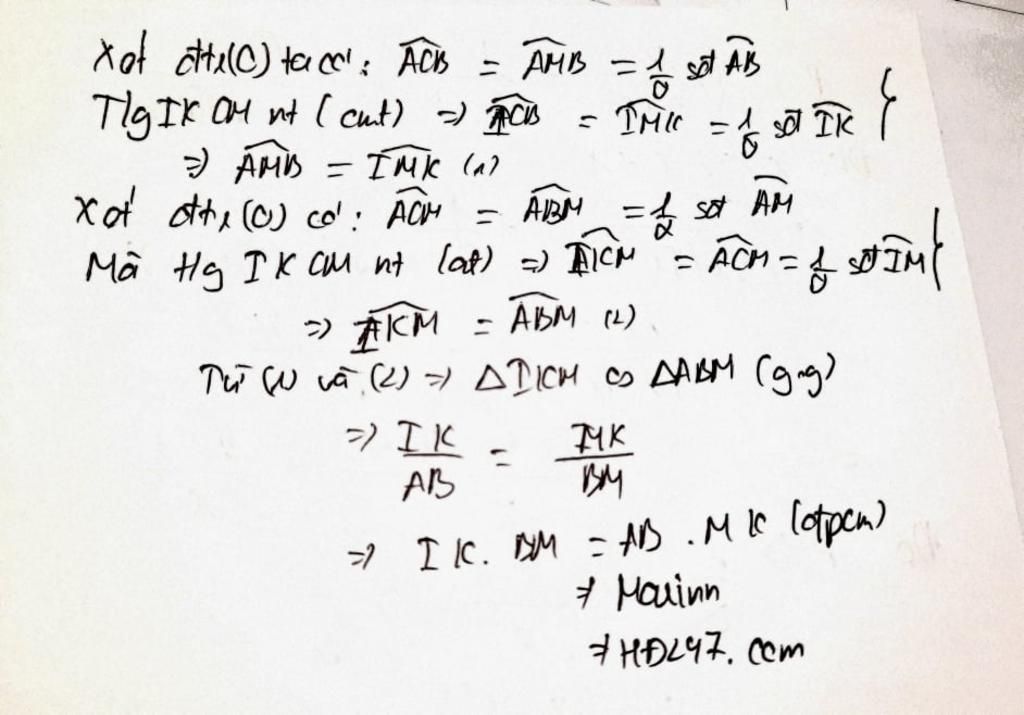 Xét đtr(O) ta có: ACB = AMB = 1/2 sđ AB
T/g IKCM nt (cmt) => ICB = IMK = 1/2 sđ IK
=> AMB = IMK (1)
Xét đtr(O) có: ACM = ABM = 1/2 sđ AM
Mà t/g IKCM nt (cmt) => IKM = ACM = 1/2 sđ IM
=> IKM = ABM (2)
Từ (1) và (2) => △IKM ∽ △ABM (g.g)
=> IK/AB = MK/BM
=> IK. BM = AB . MK (đpcm)
=> Mouinn
=> HĐ247. com